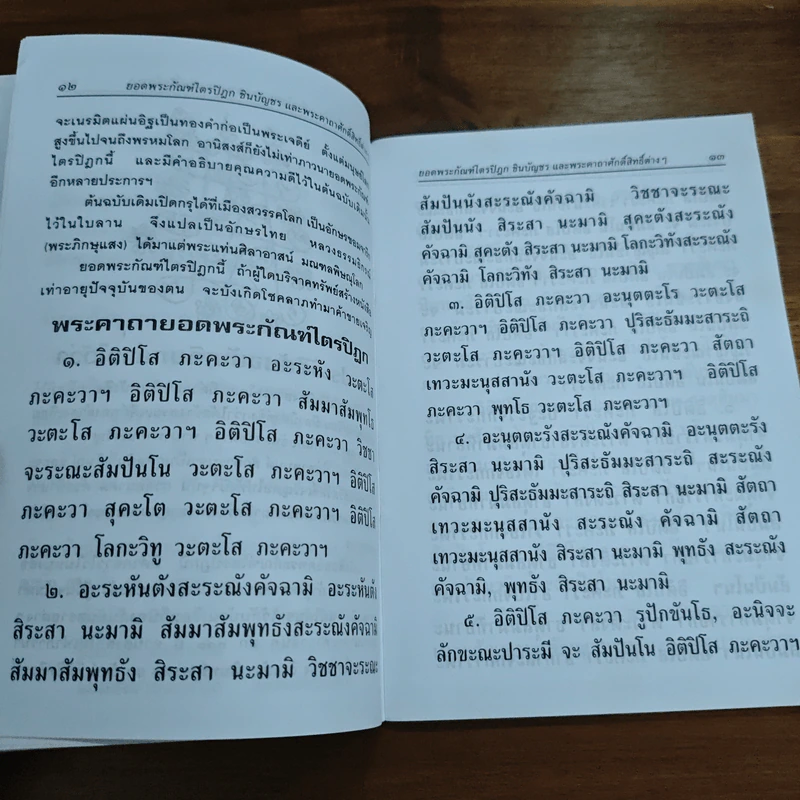 ๑๒ ยอดพระกัณฑ์ไตรปิฎก ชินบัญชร และพระคาถาศักดิ์สิทธิ์
จะเนรมิตแผ่นอิฐเป็นทองคำก่อเป็นพระเจดีย์ ตั้งแต่
สูงขึ้นไปจนถึงพรหมโลก อานิสงส์ก็ยังไม่เท่าภาวนา
ไตรปิฎกนี้ และมีคำอธิบายคุณความดีไว้ในต้นฉบับเดิม
อีกหลายประการฯ
ต้นฉบับเดิมเปิดกรุได้ที่เมืองสวรรคโลก เป็นอักษรขอม
ไว้ในใบลาน จึงแปลเป็นอักษรไทย หลวงธรรม
(พระภิกษุแสง) ได้มาแต่พระแท่นศิลาอาสน์ มณฑลพิษณุโลก
ยอดพระกัณฑ์ไตรปิฎกนี้ ถ้าผู้ใดบริจาคทรัพย์สร้าง
เท่าอายุปัจจุบันของตน จะบังเกิดโชคลาภทำมาค้าขาย
พระคาถายอดพระกัณฑ์ไตรปิฎก
๑. อิติปิโส ภะคะวา อะระหัง วะตะโส
ภะคะวาฯ อิติปิโส ภะคะวา สัมมาสัมพุทโธ
วะตะโส ภะคะวาฯ อิติปิโส ภะคะวา วิชชา
จะระณะสัมปันโน วะตะโส ภะคะวาฯ อิติปิโส
ภะคะวา สุคะโต วะตะโส ภะคะวาฯ อิติปิโส
ภะคะวา โลกะวิทู วะตะโส ภะคะวาฯ
๒. อะระหันตังสะระณังคัจฉามิ อะระหันตัง
สิระสา นะมามิ สัมมาสัมพุทธังสะระณังคัจฉามิ
สัมมาสัมพุทธัง สิระสา นะมามิ วิชชาจะระณะ
ยอดพระกัณฑ์ไตรปิฎก ชินบัญชร และพระคาถาศักดิ์สิทธิ์ต่างๆ ๑๓
สัมปันนังสะระณังคัจฉามิ วิชชาจะระณะ
สัมปันนัง สิระสา นะมามิ สุคะตังสะระณัง
คัจฉามิ สุคะตัง สิระสา นะมามิ โลกะวิทังสะระณัง
คัจฉามิ โลกะวิทัง สิระสา นะมามิ
๓. อิติปิโส ภะคะวา อะนุตตะโร วะตะโส
ภะคะวาฯ อิติปิโส ภะคะวา ปุริสะธัมมะสาระถิ
วะตะโส ภะคะวาฯ อิติปิโส ภะคะวา สัตถา
เทวะมะนุสสานัง วะตะโส ภะคะวาฯ อิติปิโส
ภะคะวา พุทโธ วะตะโส ภะคะวาฯ
๔. อะนุตตะรังสะระณังคัจฉามิ อะนุตตะรัง
สิระสา นะมามิ ปุริสะธัมมะสาระถิ สะระณัง
คัจฉามิ ปุริสะธัมมะสาระถิ สิระสา นะมามิ สัตถา
เทวะมะนุสสานัง สะระณัง คัจฉามิ สัตถา
เทวะมะนุสสานัง สิระสา นะมามิ พุทธัง สะระณัง
คัจฉามิ, พุทธัง สิระสา นะมามิ
๕. อิติปิโส ภะคะวา รูปักขันโธ, อะนิจจะ
ลักขะณะปาระมี จะ สัมปันโน อิติปิโส ภะคะวาฯ